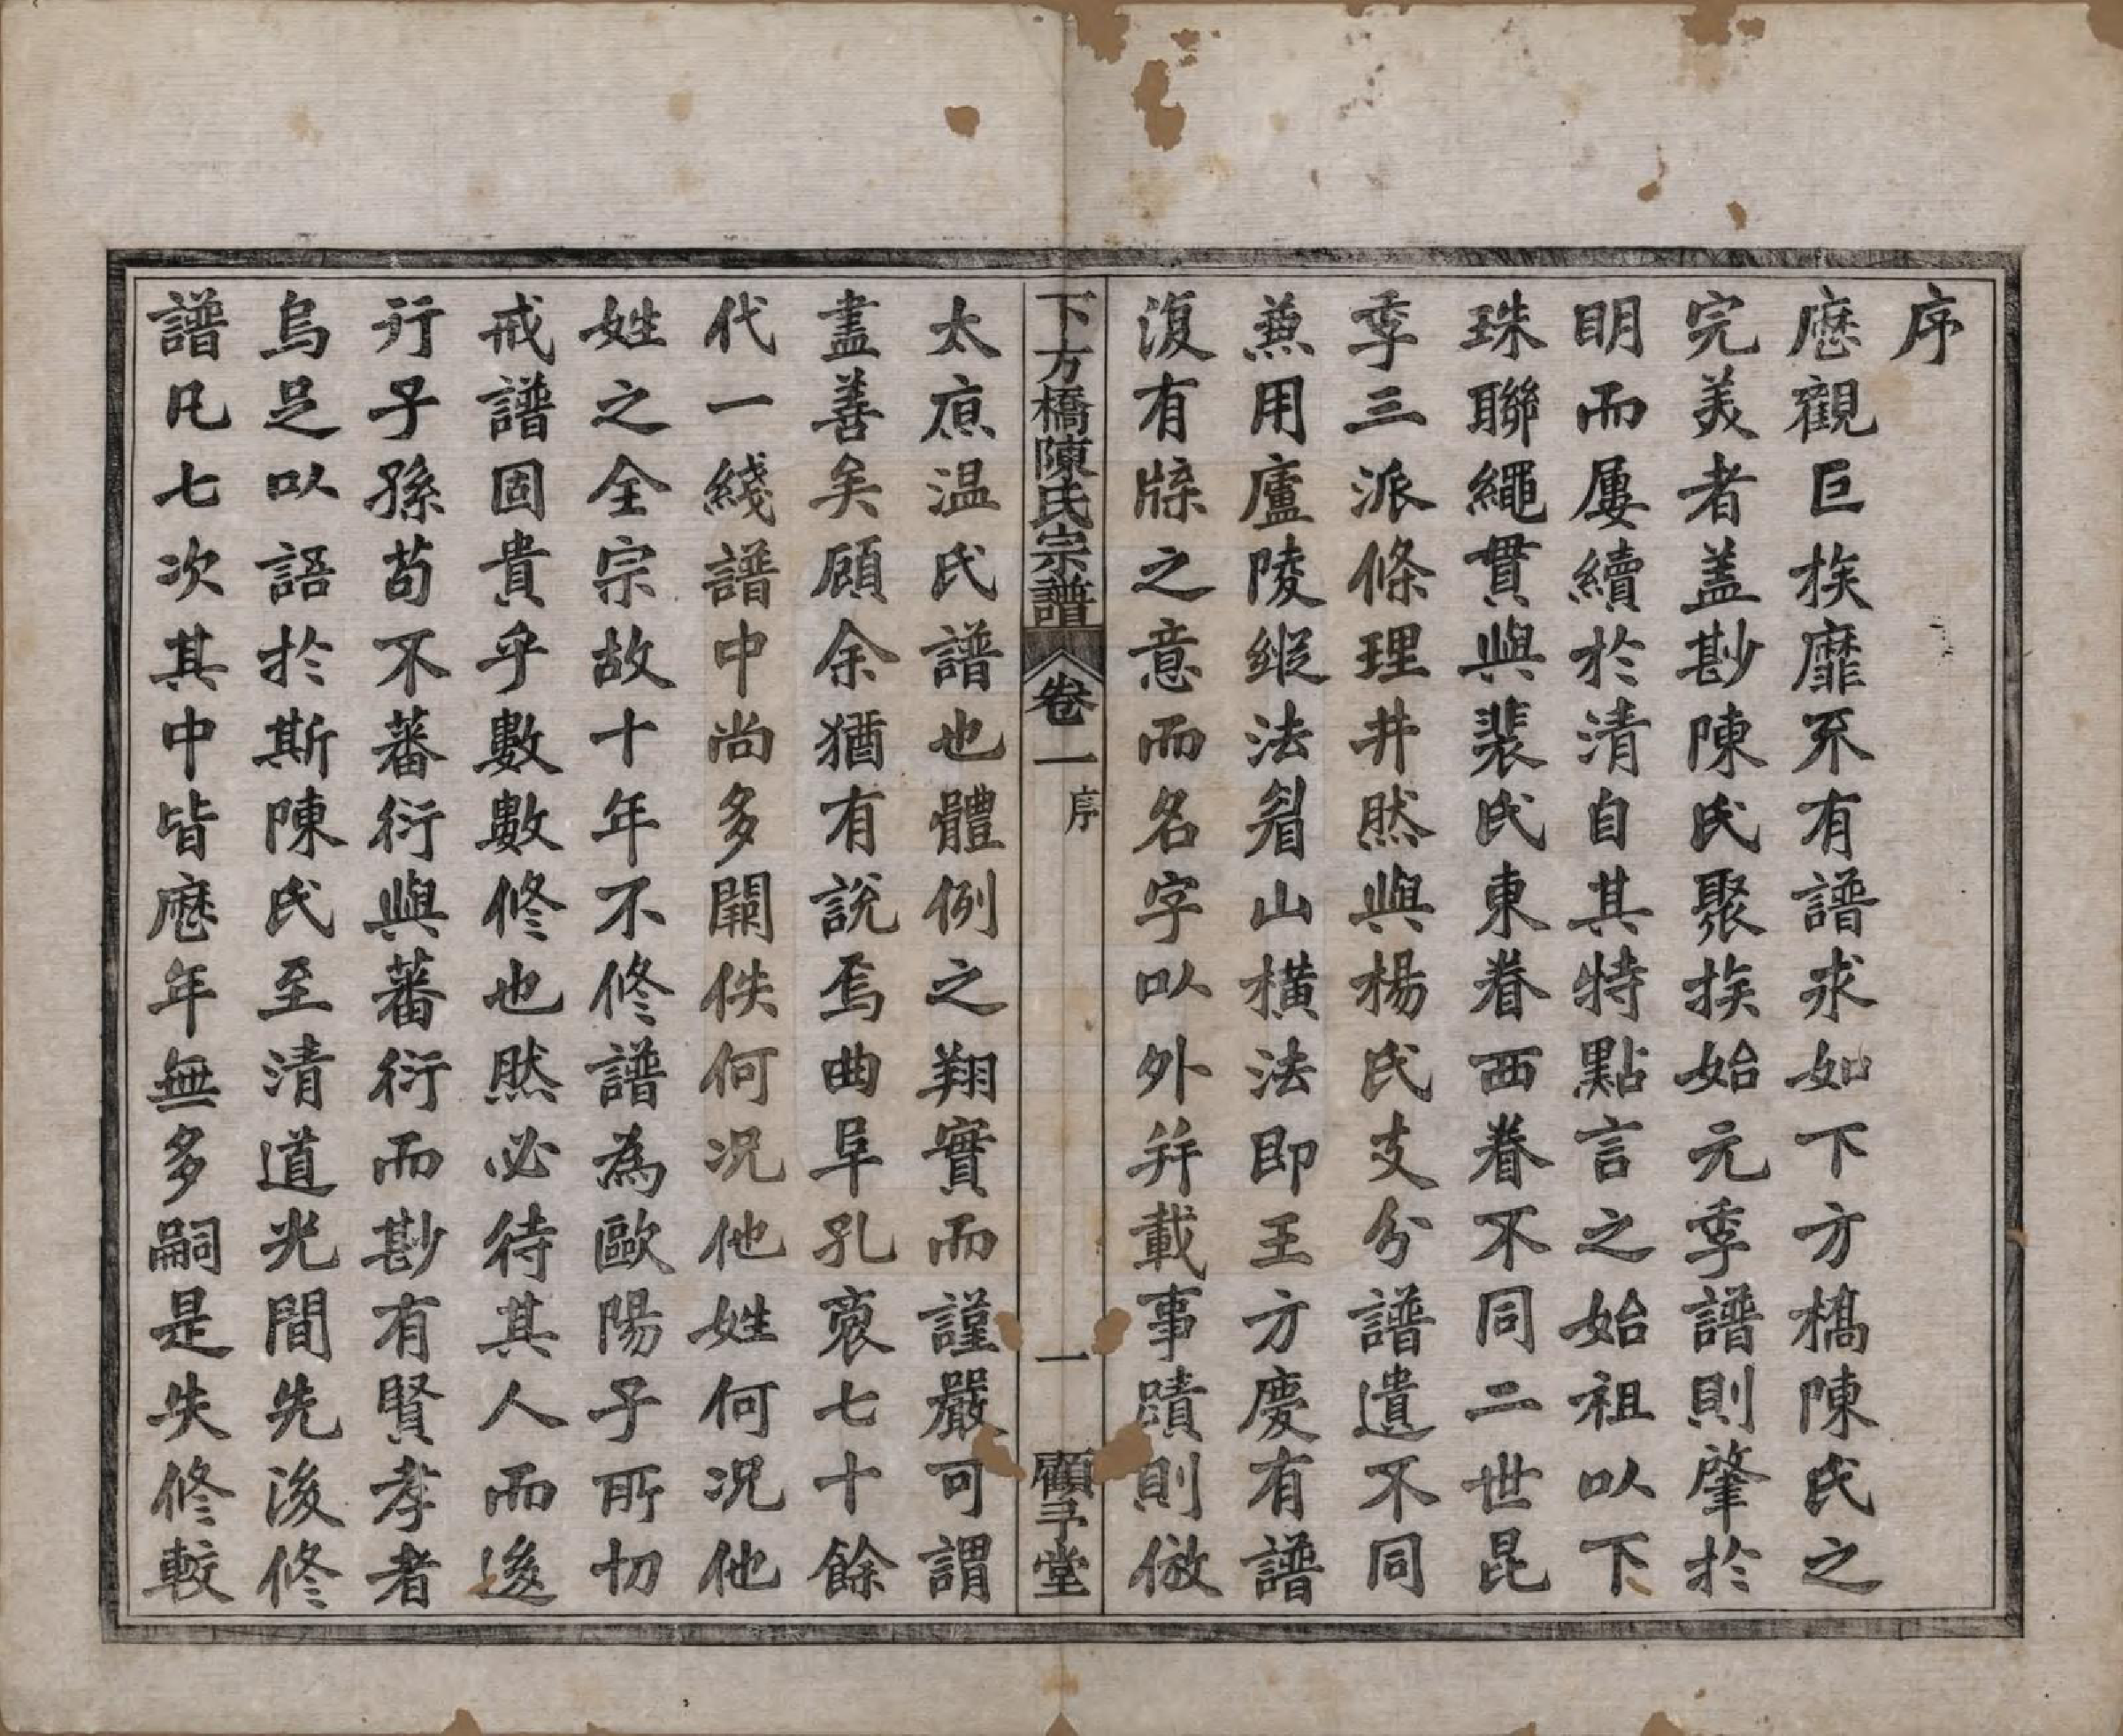 序
歷觀巨族靡不有譜求如下方橋陳氏之
完美者蓋尠陳氏聚族始元季譜則肇於
明而屢續於清自其特點言之始祖以下
珠聯繩貫與裴氏東眷西眷不同二世昆
季三派條理井然與楊氏支分譜遺不同
兼用廬陵縱法眉山橫法即王方慶有譜
復有牒之意而名字以外并載事蹟則倣
下方橋陳氏宗譜 卷一 序 一 顧予堂
太原温氏譜也體例之翔實而謹嚴可謂
盡善矣顧余猶有說焉曲阜孔裒七十餘
代一綫譜中尚多闕佚何況他姓何況他
姓之全宗故十年不修譜為歐陽子所切
戒譜固貴乎數數修也然必待其人而後
行子孫苟不蕃衍與蕃衍而尠有賢孝者
烏足以語於斯陳氏至清道光間先後修
譜凡七次其中皆歷年無多嗣是失修較